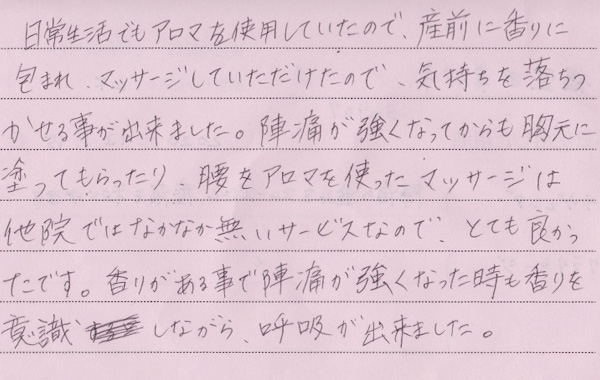 日常生活でもアロマを使用していたので、産前に香りに
包まれ、マッサージしていただけたので、気持ちを落ちつ
かせる事が出来ました。陣痛が強くなってからも胸元に
塗ってもらったり、腰をアロマを使ったマッサージは
他院ではなかなか無いサービスなので、とても良かっ
たです。香りがある事で陣痛が強くなった時も香りを
意識しながら、呼吸が出来ました。